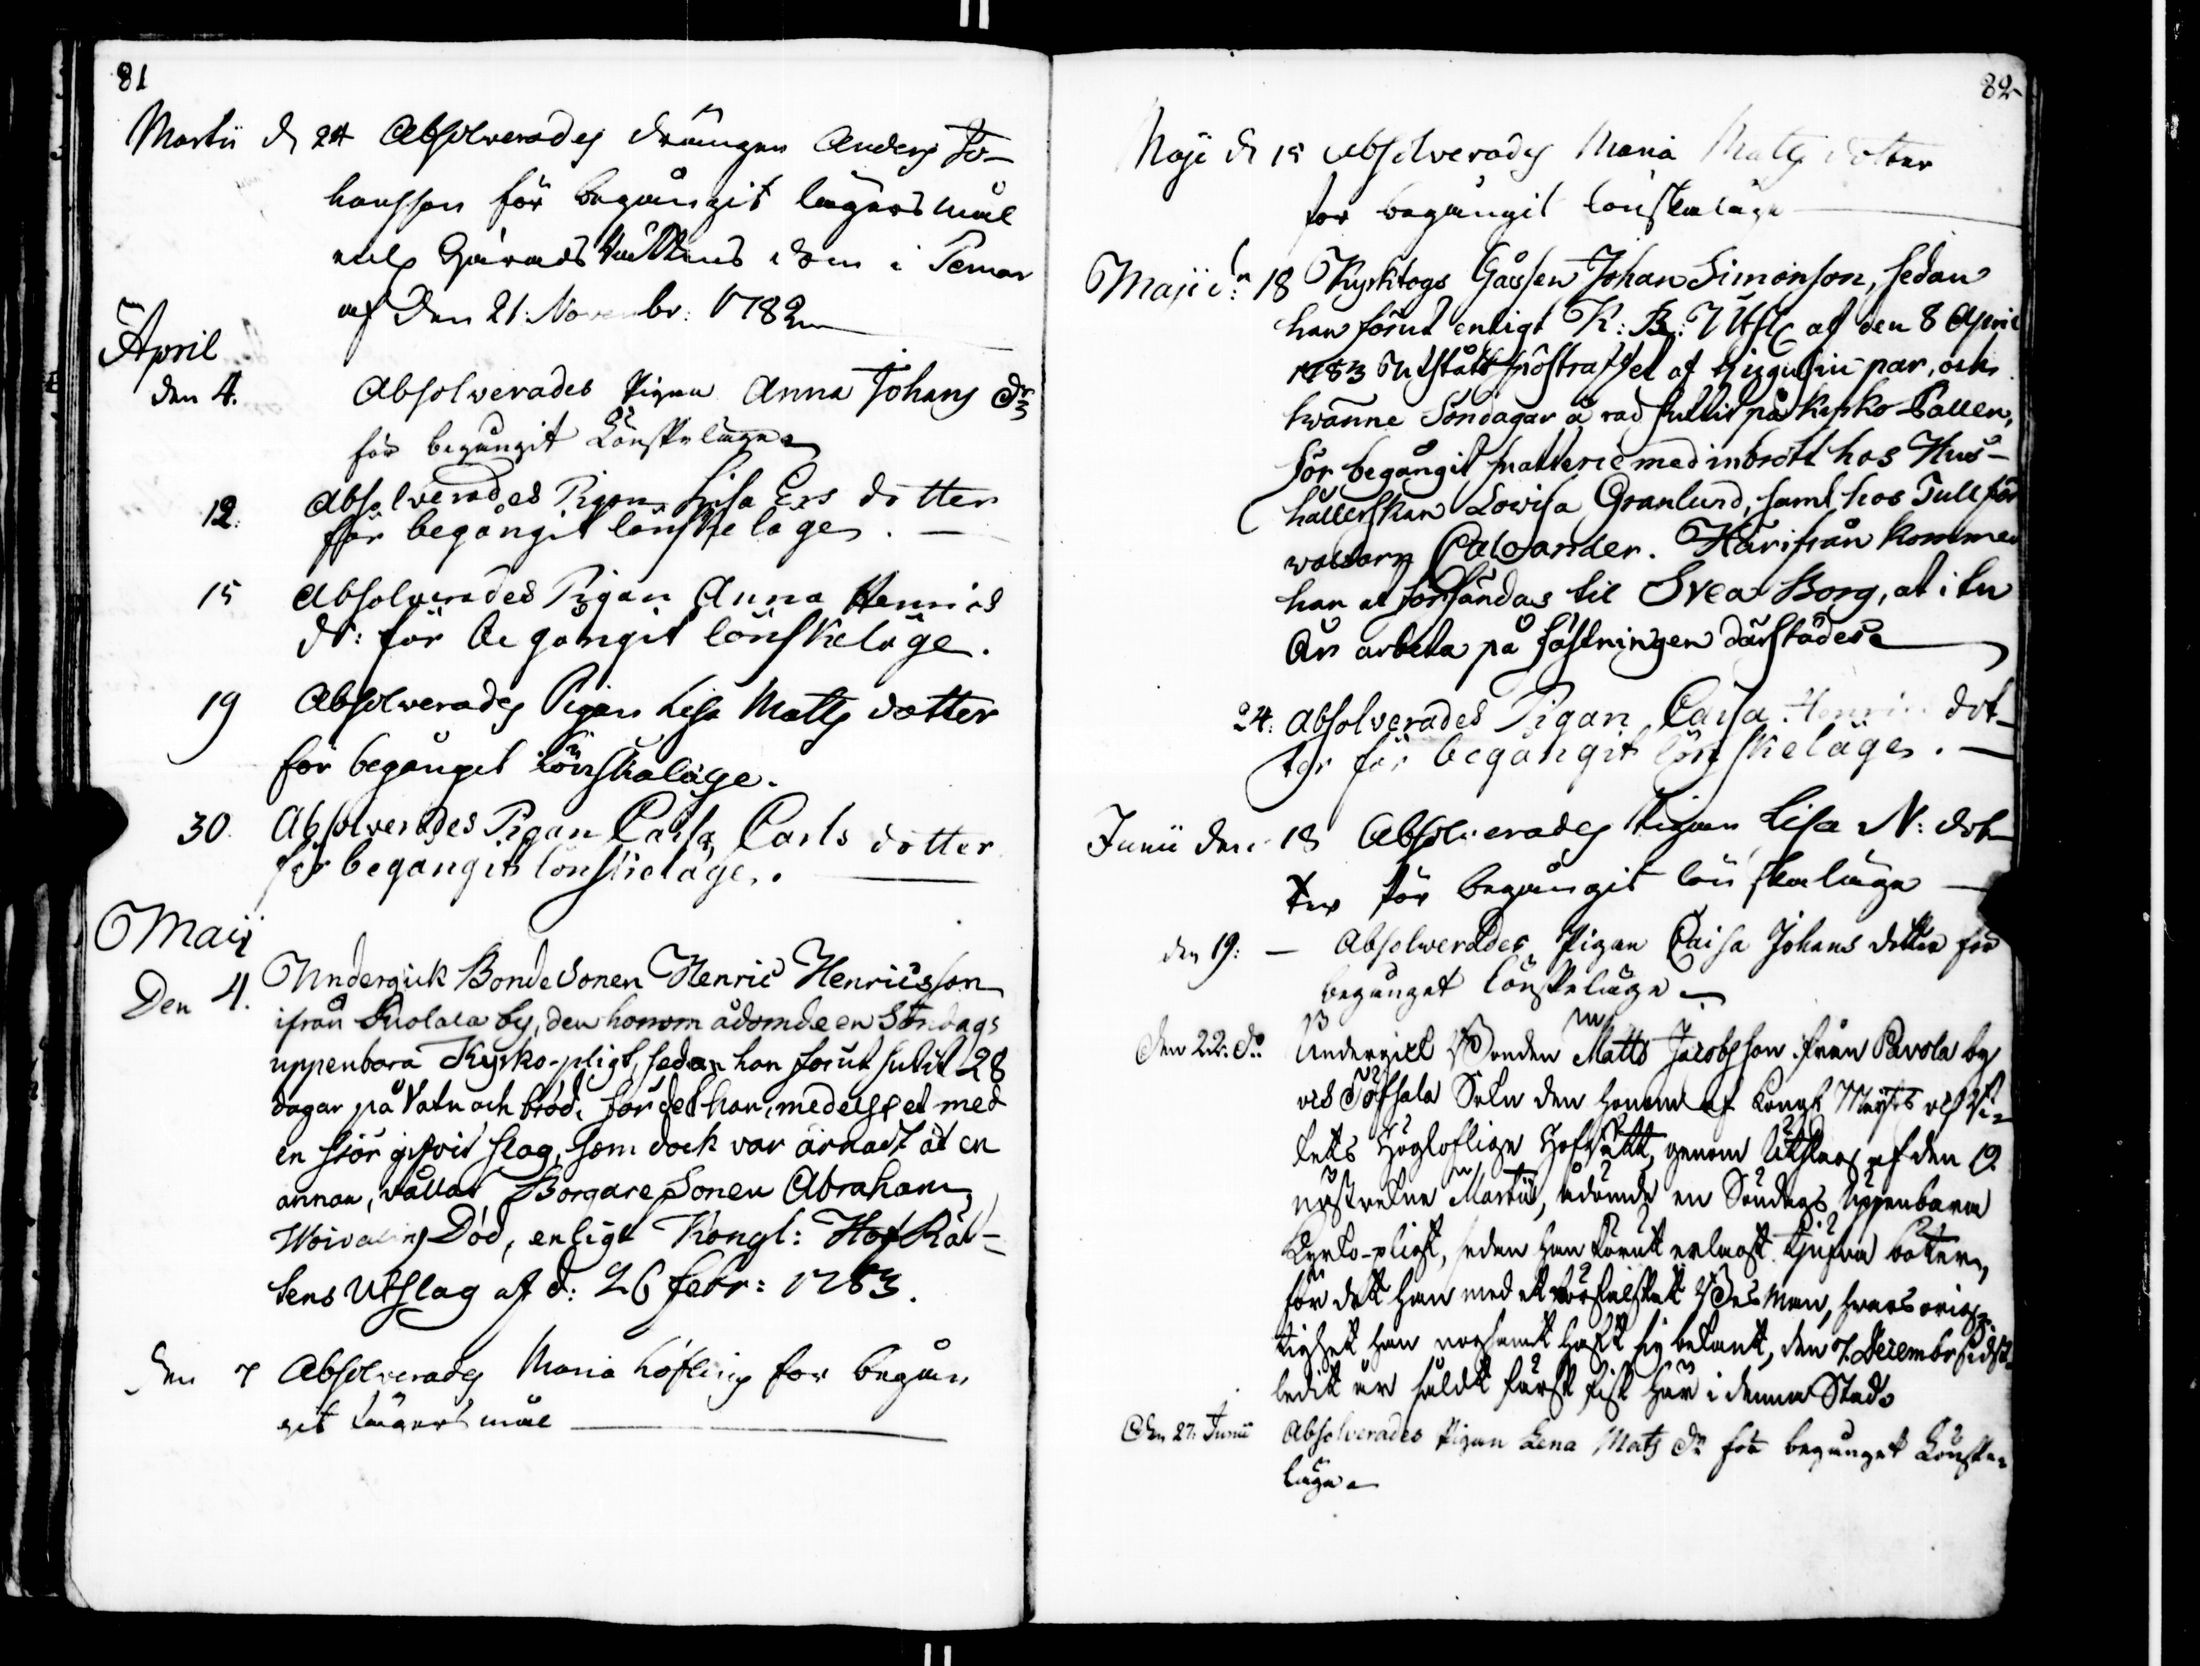 81
Martii d 24 Absolverades drängen Anders Jo-
hansson för begångit lägersmål
enl. Härads Rättens dom i Pemar
af den 21. Novembr: 1782
April
den 4. Absolverades Pigan Anna Johans Dr
för begångit Lönskeläge
12. Absolverades Pigan Lisa Ers dotter
för begångit lönskeläge. —
15 Absolverades Pigan Anna Henrics
dr: för begångit lönskeläge.
19 Absolverades Pigan Lisa Matts dotter
för begånget lönskaläge.
30. Absolverades Pigan Caisa Carls dotter
för begångit lönskeläge.
Maij
Den 4. Undergick BondeSonen Henric Henricsson
ifrån Suolala by, den honom ådömde en Söndags
uppenbara Kyrko-pligt, sedan han förut sutit 28
dagar på Vatn och bröd, för det han, medelst et med
en stör gifvit slag, som dock var ärnadt åt en
annan, vållat Borgare Sonen Abraham
Död, enligt Kongl: Hof Rät-
tens Utslag af d: 26 febr: 1783.
den 7 Absolverades Maria Höfling för begån
git lägersmål
82
Maji d 15 Absolverades Maria Mats dotter
för begångit lönskaläge
Maji dn: 18 Kyrktogs Gåssen Johan Simonson, sedan
han förut enligt K: B: Utsl. af den 8 April
1783 Utstått spöstraffet af tjugufiu par, och
tvänne Söndagar å rad suttit på Kyrko-Pallen,
för begångit snatterie med inbrott hos Hus-
hållerskan Lovisa Granlund, samt hos Tullför
valtarn Calsander. Härifrån kommer
han at försändas til Svea Borg, at i tu
År arbeta på fästningen därstädes
24. Absolverades Pigan Caisa Henrics dot-
ter för begångit lönskeläge. —
Junii den 18 Absolverades Pigan Lisa N: dot-
ter för begångit lönskaläge
den 19. — Absolverades Pigan Caisa Johans dotter för
begånget lönskeläge
den 22. do Undergick Bonden Matts Jacobsson ifrån Pavola by
och Töfsala Sokn den honom af Kongl. Maj:ts och Ri-
kets Högloflige Hofrätt, genom Utslag af den 19
Martii, ådömde en Söndags Uppenbara
Kyrko-pligt, sedan han förut erlagt böter,
för det han med et förfalskat han, hvars orich-
tighet han haft sig bekant, den 7. Decembr sidst-
ledit år såldt färsk fisk här i denna Stad
Den 27. Junii Absolverades Pigan Lena Mats Dr för begånget Lönske-
läge